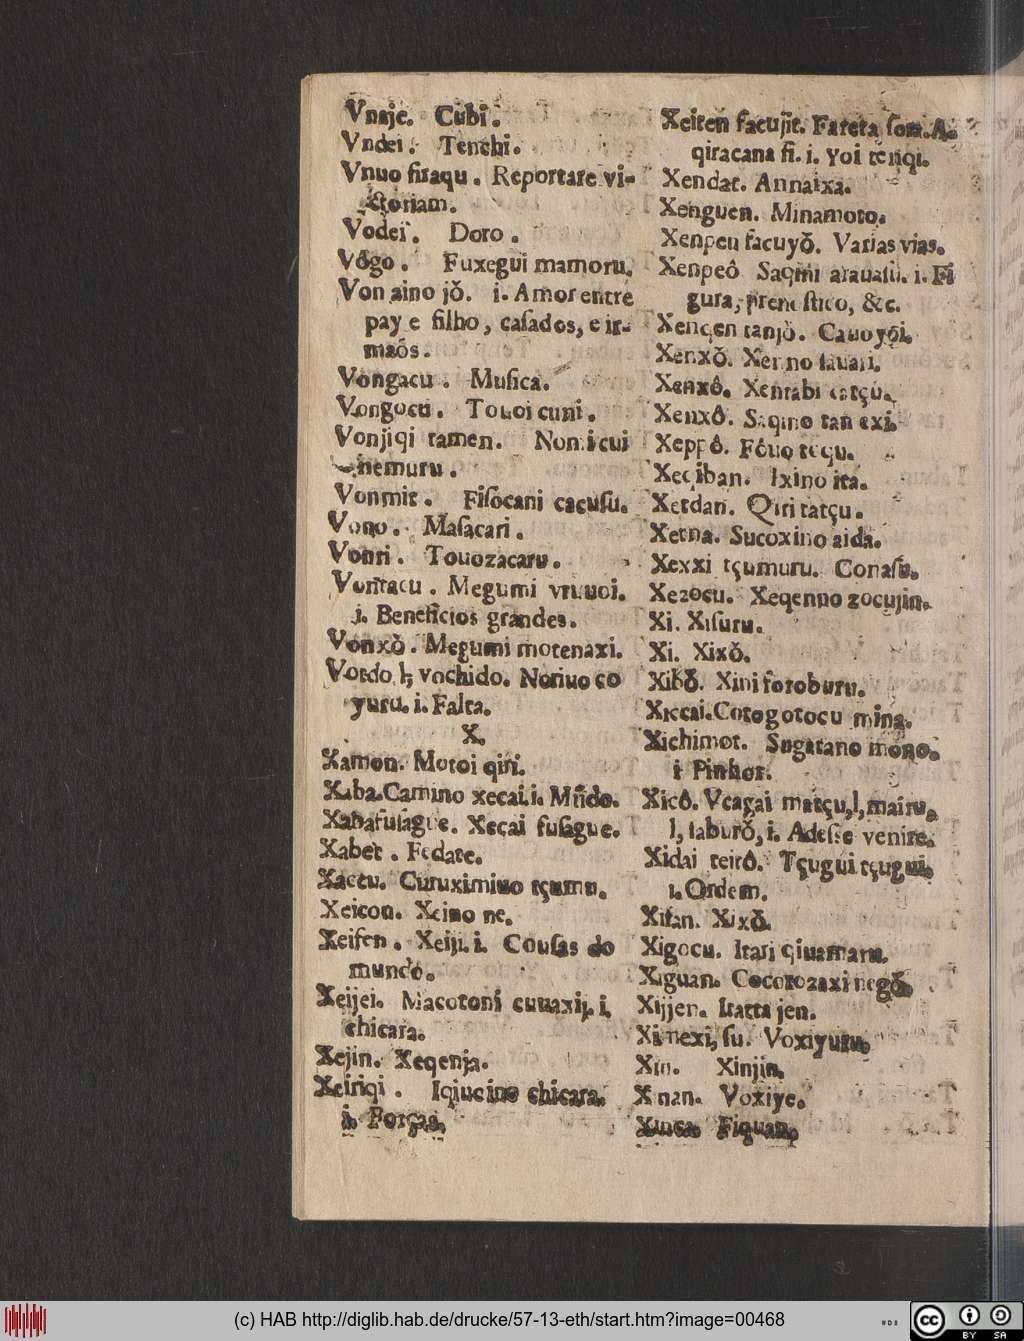 Vnaje. Cubi.
Vndei. Tenchi.
Vnuo firaqu. Reportare vi-
ctoriam.
Vodei. Doro.
Vŏgo. Fuxegui mamoru.
Von aino jŏ. i. Amor entre
pay e filho, casados, e ir-
maõs.
Vongacu. Musica.
Vongocu. Touoi cuni.
Vonjiqi tamen. Nomi cui
nemuru.
Vonmit. Fisocani cacusu.
Vono. Masacari.
Vonri. Touozacaru.
Vontacu. Megumi vruuoi.
i. Beneficios grandes.
Vonxŏ. Megumi motenaxi.
Votdo, l, vochido. Noriuo co
yuru. i. Falta.
X.
Xamon. Motoi qiri.
Xaba. Camino xecai. i. Mũdo.
Xabafusague. Xecai fusague.
Xabet. Fedate.
Xaccu. Curuximiuo tçumu.
Xeicon. Xeino ne.
Xeifen. Xeiji. i. Cousas do
mundo.
Xeijei. Macotoni cuuaxij. i.
chicara.
Xejin. Xeqenja.
Xeiriqi. Iqiucino chicara.
i. Forças.
Xeiten facujit. Fareta som. A.
qiracana fi. i. Yoi tenqi.
Xendat. Annaixa.
Xenguen. Minamoto.
Xenpeu facuyŏ. Varias vias.
Xenpeô Saqini arauasu. i. Fi
gura, prenostico, &c.
Xenqen tanjŏ. Cauo yoi.
Xenxŏ. Xenno sauari.
Xenxô. Xentabi tatçu.
Xenxô. Saqino tan exi.
Xeppô. Fôuo toqu.
Xeqiban. Ixino ita.
Xetdan. Qiri tatçu.
Xetna. Sucoxino aida.
Xexxi tçumuru. Conasu.
Xezocu. Xeqenno zocujin.
Xi. Xisuru.
Xi. Xixŏ.
Xibŏ. Xini foroburu.
Xiccai. Cotogotocu mina.
Xichimot. Sugatano mono.
i Pinhor.
Xicô. Vcagai matçu, l, mairu,
l, saburŏ, i. Adesse venire.
Xidai teitô. Tçugui tçugui.
i. Ordem.
Xifan. Xixŏ.
Xigocu. Itari qiuamaru.
Xiguan. Cocorozaxi negŏ.
Xijjen. Itatta jen.
Xi nexi, su. Voxiyuru.
Xin. Xinjin.
Xinan. Voxiye.
Xinca. Fiquan.
(c) HAB http://diglib.hab.de/drucke/57-13-eth/start.htm?image=00468
cc BY SA